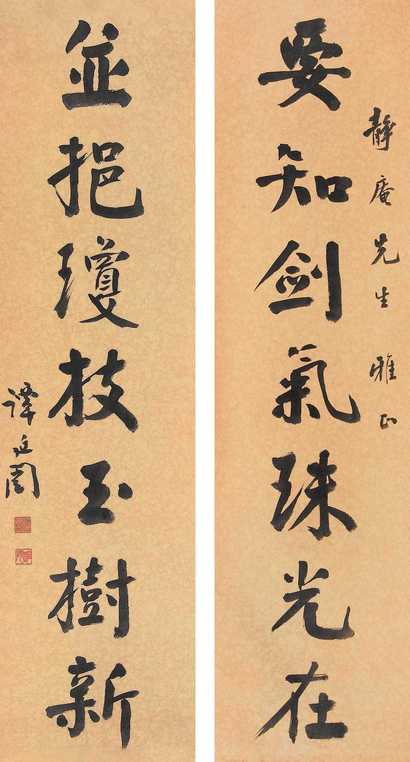 静庵先生雅正
要知劍氣珠光在
並挹瓊枝玉樹新
譚延闿